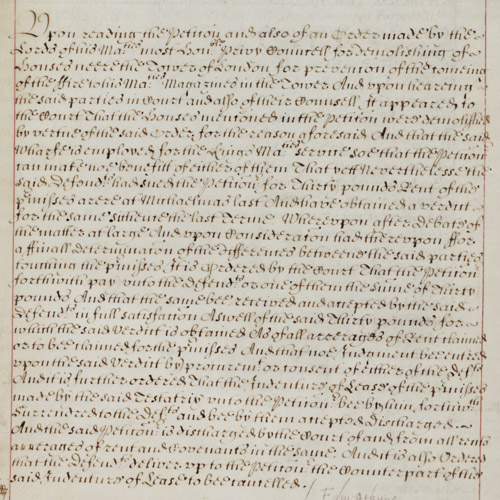 Upon reading the Petition and also of an Order made by the
Lords of his Ma^ties most Hon^ble Privy Councell for demolishing of
Houses neere the Tower of London for prevention of the comeing
of the ffire to his Ma^ties Magazines in the Tower And upon heareing
the said parties in Court and also of their Counsell, It appeared to
the Court That the Houses mencioned in the Petition were demolished
by vertue of the said Order for the reason aforesaid And that the said
Wharfe is employed for the Kings Ma^ties service soe that the Petition^r
can make noe benefitt of either of them That yett Neverthelesse the
said Defend^ts had sued the Petition^r for Thirty pounds Rent of the
p^rmisses arere at Michaelmas last And have obtained a verdict
for the same sithence the last Terme Whereupon after debate of
the matter at large And upon Consideration had thereupon ffor
a ffinall determinacion of the differences betweene the said parties
touching the p^rmisses, It is Ordered by the Court That the Petition^r
forthwith pay unto the defend^ts or one of them the sume of Thirty
pounds And that the same bee received and accepted by the said
Defend^ts in full satisfaction Aswell of the said Thirty pounds for
which the said verdict is obtained As of all arrerages of Rent claimed
or to bee claimed for the p^rmisses And that noe Judgment bee entred
upon the said Verdict by procurem^t or consent of either of the Def^ts
And it is further ordered That the Indenture of Lease of the p^rmisses
made by the said Testatrix unto the Petition^r bee by him forthw^th
Surrendred to the Def^ts and bee by them accepted & discharged
And the said Petition^r is discharged by the Court of and from all rents
arrerages of rent and Covenants in the same. And it is also Ordered
that the defend^ts deliver up to the Petition^r the Counterpart of the
said Indenture of Lease to bee cancelled